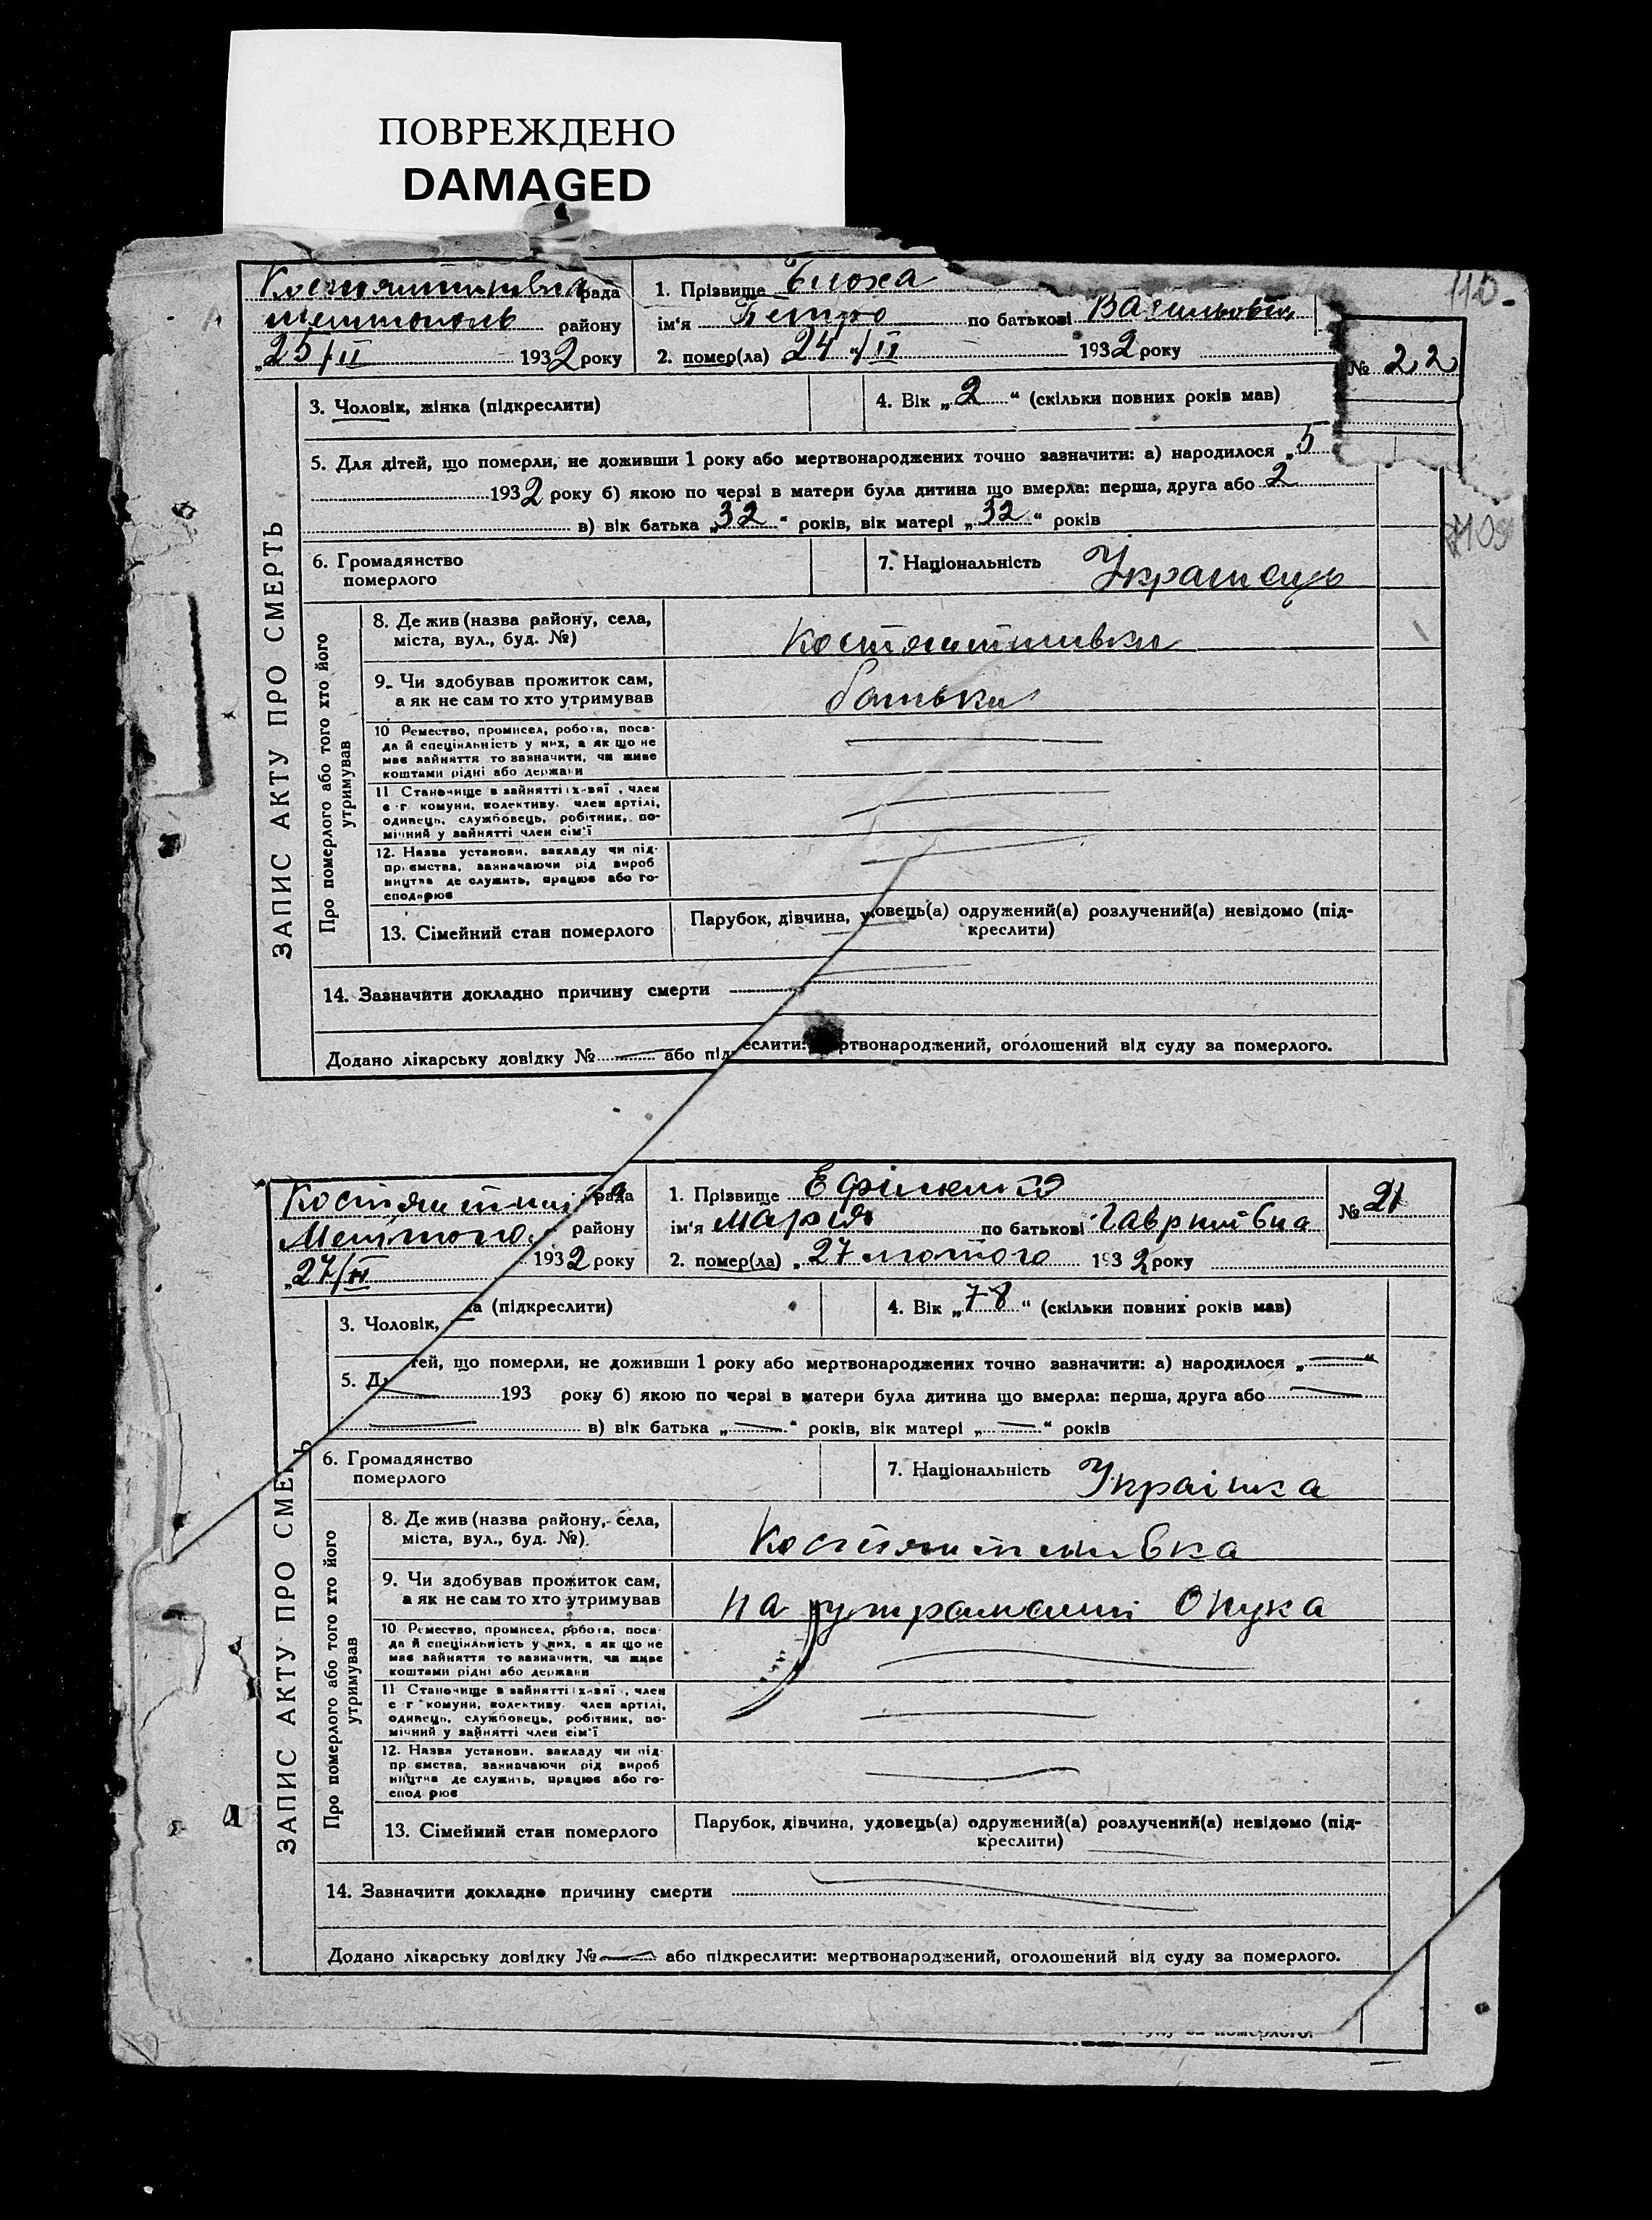 ПОВРЕЖДЕНО
DAMAGED
110
Костянтинівка рада
Мелітополь району
„25/II 1932 року
1. Прізвище Блоха
ім'я Петро по батькові Васильович
2. помер(ла) 24/II 1932 року
№ 22
3. Чоловік, жінка (підкреслити)
4. Вік „2“ (скільки повних років мав)
5. Для дітей, що померли, не доживши 1 року або мертвонароджених точно зазначити: а) народилося „5
1932 року б) якою по черзі в матери була дитина що вмерла: перша, друга або 2
в) вік батька „32“ років, вік матері „32“ років
109
6. Громадянство
померлого
7. Національність Украинець
ЗАПИС АКТУ ПРО СМЕРТЬ
Про померлого або того хто його
утримував
8. Де жив (назва району, села,
міста, вул., буд. №)
Костянтинивки
9. Чи здобував прожиток сам,
а як не сам то хто утримував
батьки
10 Ремество, промисел, робота, поса-
да й спеціяльність у них, а як що не
має зайняття то зазначити, чи живе
коштами рідні або держави
11 Становище в зайнятті , член
с-г комуни, колективу. член артілі,
одинець, службовець, робітник, по-
мічний у зайнятті член сім'ї
12. Назва установи, закладу чи під-
приємства, зазначаючи рід вироб
ництва де служить, працює або го-
сподарює
13. Сімейний стан померлого
Парубок, дівчина, удовець(а) одружений(а) розлучений(а) невідомо (під-
креслити)
14. Зазначити докладно причину смерти
Додано лікарську довідку № або під еслити: ртвонароджений, оголошений від суду за померлого.
Костянтинів рада
Мелітопо району
„27/II 1932 року
1. Прізвище Ефіменко
ім'я Марія по батькові Гаврилівна
2. помер(ла) „27 лютого 1932 року
№ 21
3. Чоловік, а (підкреслити)
4. Вік „78“ (скільки повних років мав)
5. Д тей, що померли, не доживши 1 року або мертвонароджених точно зазначити: а) народилося „ “
193 року б) якою по черзі в матери була дитина що вмерла: перша, друга або
в) вік батька „ “ років, вік матері „ “ років
6. Громадянство
померлого
7. Національність Українка
ЗАПИС АКТУ ПРО СМЕРТЬ
Про померлого або того хто його
утримував
8. Де жив (назва району, села,
міста, вул., буд. №)
Костянтинівка
9. Чи здобував прожиток сам,
а як не сам то хто утримував
на утриманні Онука
10 Ремество, промисел, робота, поса-
да й спеціяльність у них, а як що не
має зайняття то зазначити, чи живе
коштами рідні або держави
11 Становище в зайнятті , член
с-г комуни, колективу. член артілі,
одинець, службовець, робітник, по-
мічний у зайнятті член сім'ї
12. Назва установи, закладу чи під-
приємства, зазначаючи рід вироб
ництва де служить, працює або го-
сподарює
13. Сімейний стан померлого
Парубок, дівчина, удовець(а) одружений(а) розлучений(а) невідомо (під-
креслити)
14. Зазначити докладно причину смерти
Додано лікарську довідку № або підкреслити: мертвонароджений, оголошений від суду за померлого.
суду за померлого.